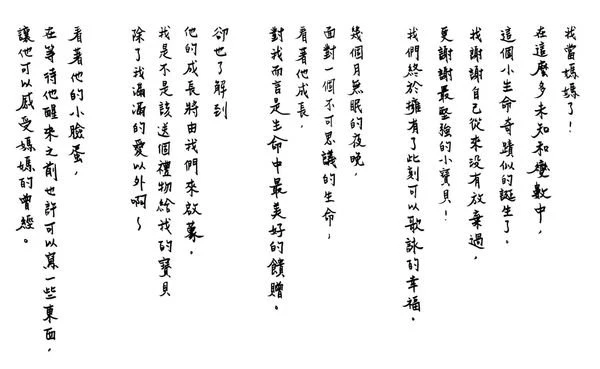 我當媽媽了！
在這麼多未知和變數中，
這個小生命奇蹟似的誕生了。
我謝謝自己從來沒有放棄過，
更謝謝最堅強的小寶貝！
我們終於擁有了此刻可以歌詠的幸福。
幾個月無眠的夜晚，
面對一個不可思議的生命，
看著他成長，
對我而言是生命中最美好的饋贈。
卻也了解到
他的成長將由我們來啟蒙。
我是不是該送個禮物給我的寶貝
除了我滿滿的愛以外啊～
看著他的小臉蛋，
在等待他醒來之前也許可以寫一些東西，
讓他可以感受媽媽的曾經。